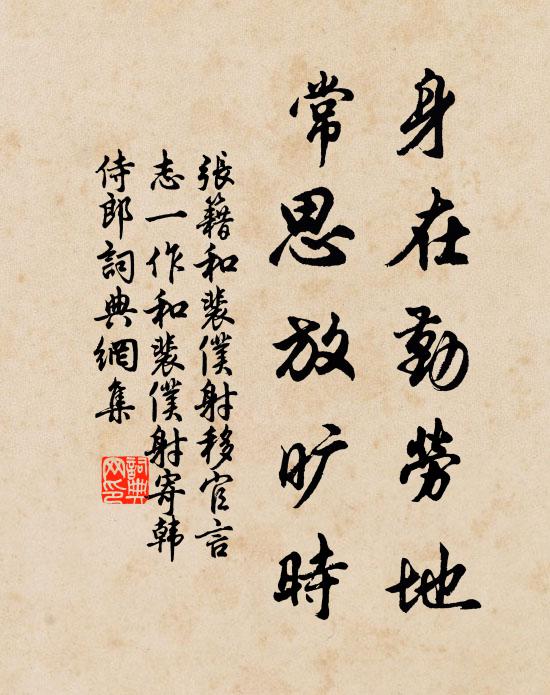 身在勤劳地
常思放旷時
張籍和裴僕射移官言
志一作和裴僕射寄韩
侍郎詞典網集
詞典网印